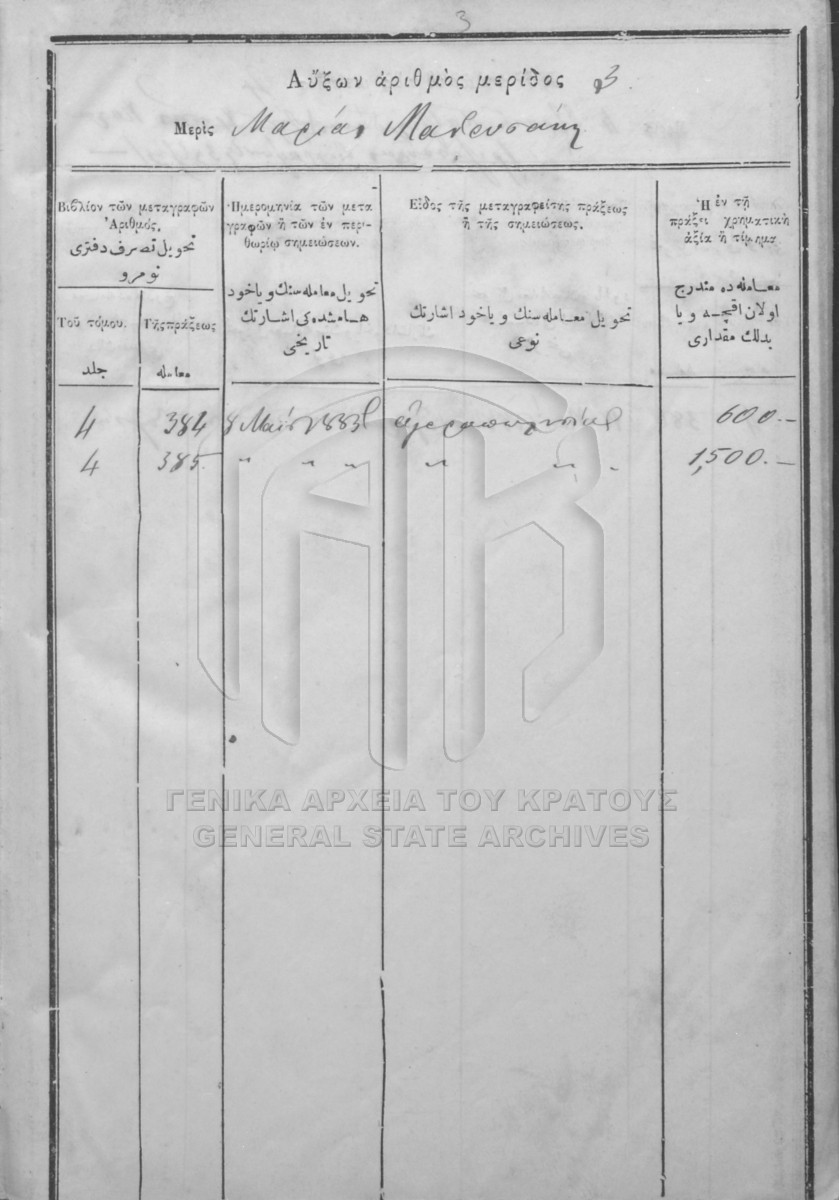 3
Αὔξων ἀριθμὸς μερίδος 3
Μερὶς Μαρίας
Βιβλίον τῶν μεταγραφῶν
Ἀριθμός.
تحويل تصرف دفترى
نومرو
Τοῦ τόμου.
جلد
Τῆς πράξεως
معامله
Ἡμερομηνία τῶν μετα
γραφῶν ἢ τῶν ἐν περι-
θωρίῳ σημειώσεων.
تحويل معامله سنك وياخود
هامشده كى اشارتك
تاريخى
Εἶδος τῆς μεταγραφείσης πράξεως
ἢ τῆς σημειώσεως.
تحويل معامله سنك وياخود اشارتك
نوعى
Ἡ ἐν τῇ
πράξει χρηματικὴ
ἀξία ἢ τίμημα
معامله ده مندرج
اولان اقچه و يا
بدلك مقدارى
4 384 8 Μαΐου 1883 ἀγοραπωλησίας 600.—
4 385. " " " " " . 1,500.—
ΓΕΝΙΚΑ ΑΡΧΕΙΑ ΤΟΥ ΚΡΑΤΟΥΣ
GENERAL STATE ARCHIVES